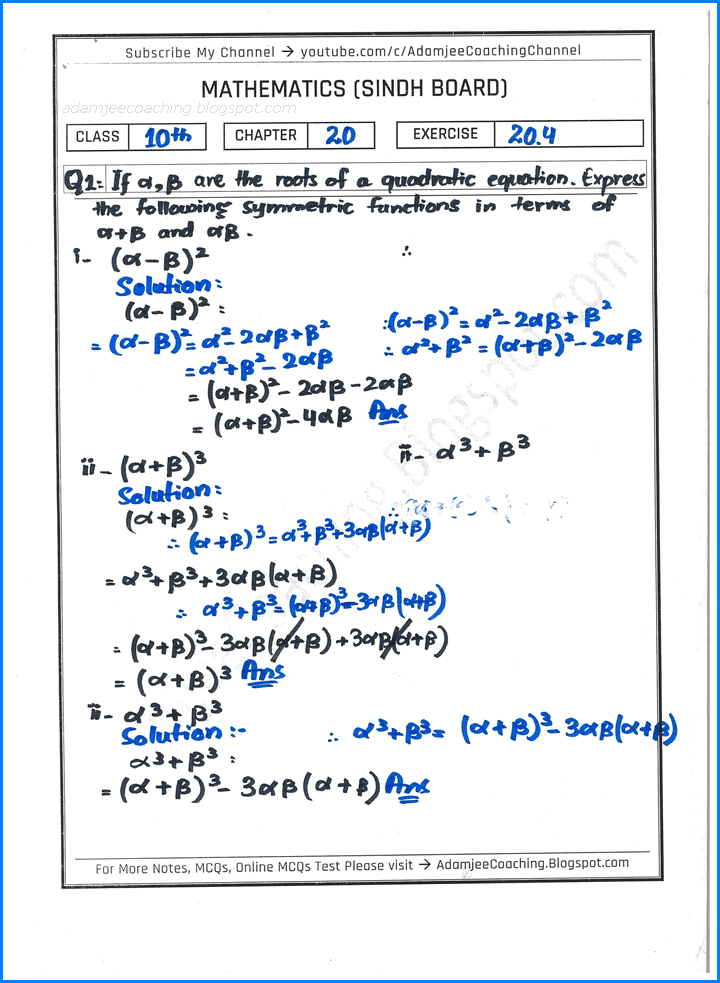 Subscribe My Channel → youtube.com/c/AdamjeeCoachingChannel
MATHEMATICS (SINDH BOARD)
adamjeecoaching.blogspot.com
CLASS 10th CHAPTER 20 EXERCISE 20.4
Q1: If α, β are the roots of a quadratic equation. Express
the following symmetric functions in terms of
α+β and αβ.
i- (α-β)² ∴
Solution:
(α-β)² :
= (α-β)² = α² - 2αβ + β² ∴ (α-β)² = α² - 2αβ + β²
= α² + β² - 2αβ ∴ α² + β² = (α+β)² - 2αβ
= (α+β)² - 2αβ - 2αβ
= (α+β)² - 4αβ Ans
ii- (α+β)³ ii- α³ + β³
Solution:
(α+β)³ :
∴ (α+β)³ = α³ + β³ + 3αβ(α+β)
= α³ + β³ + 3αβ(α+β)
∴ α³ + β³ = (α+β)³ - 3αβ(α+β)
= (α+β)³ - 3αβ(α+β) + 3αβ(α+β)
= (α+β)³ Ans
ii- α³ + β³
Solution:- ∴ α³ + β³ = (α+β)³ - 3αβ(α+β)
α³ + β³ :
= (α+β)³ - 3αβ(α+β) Ans
For More Notes, MCQs, Online MCQs Test Please visit → AdamjeeCoaching.Blogspot.com